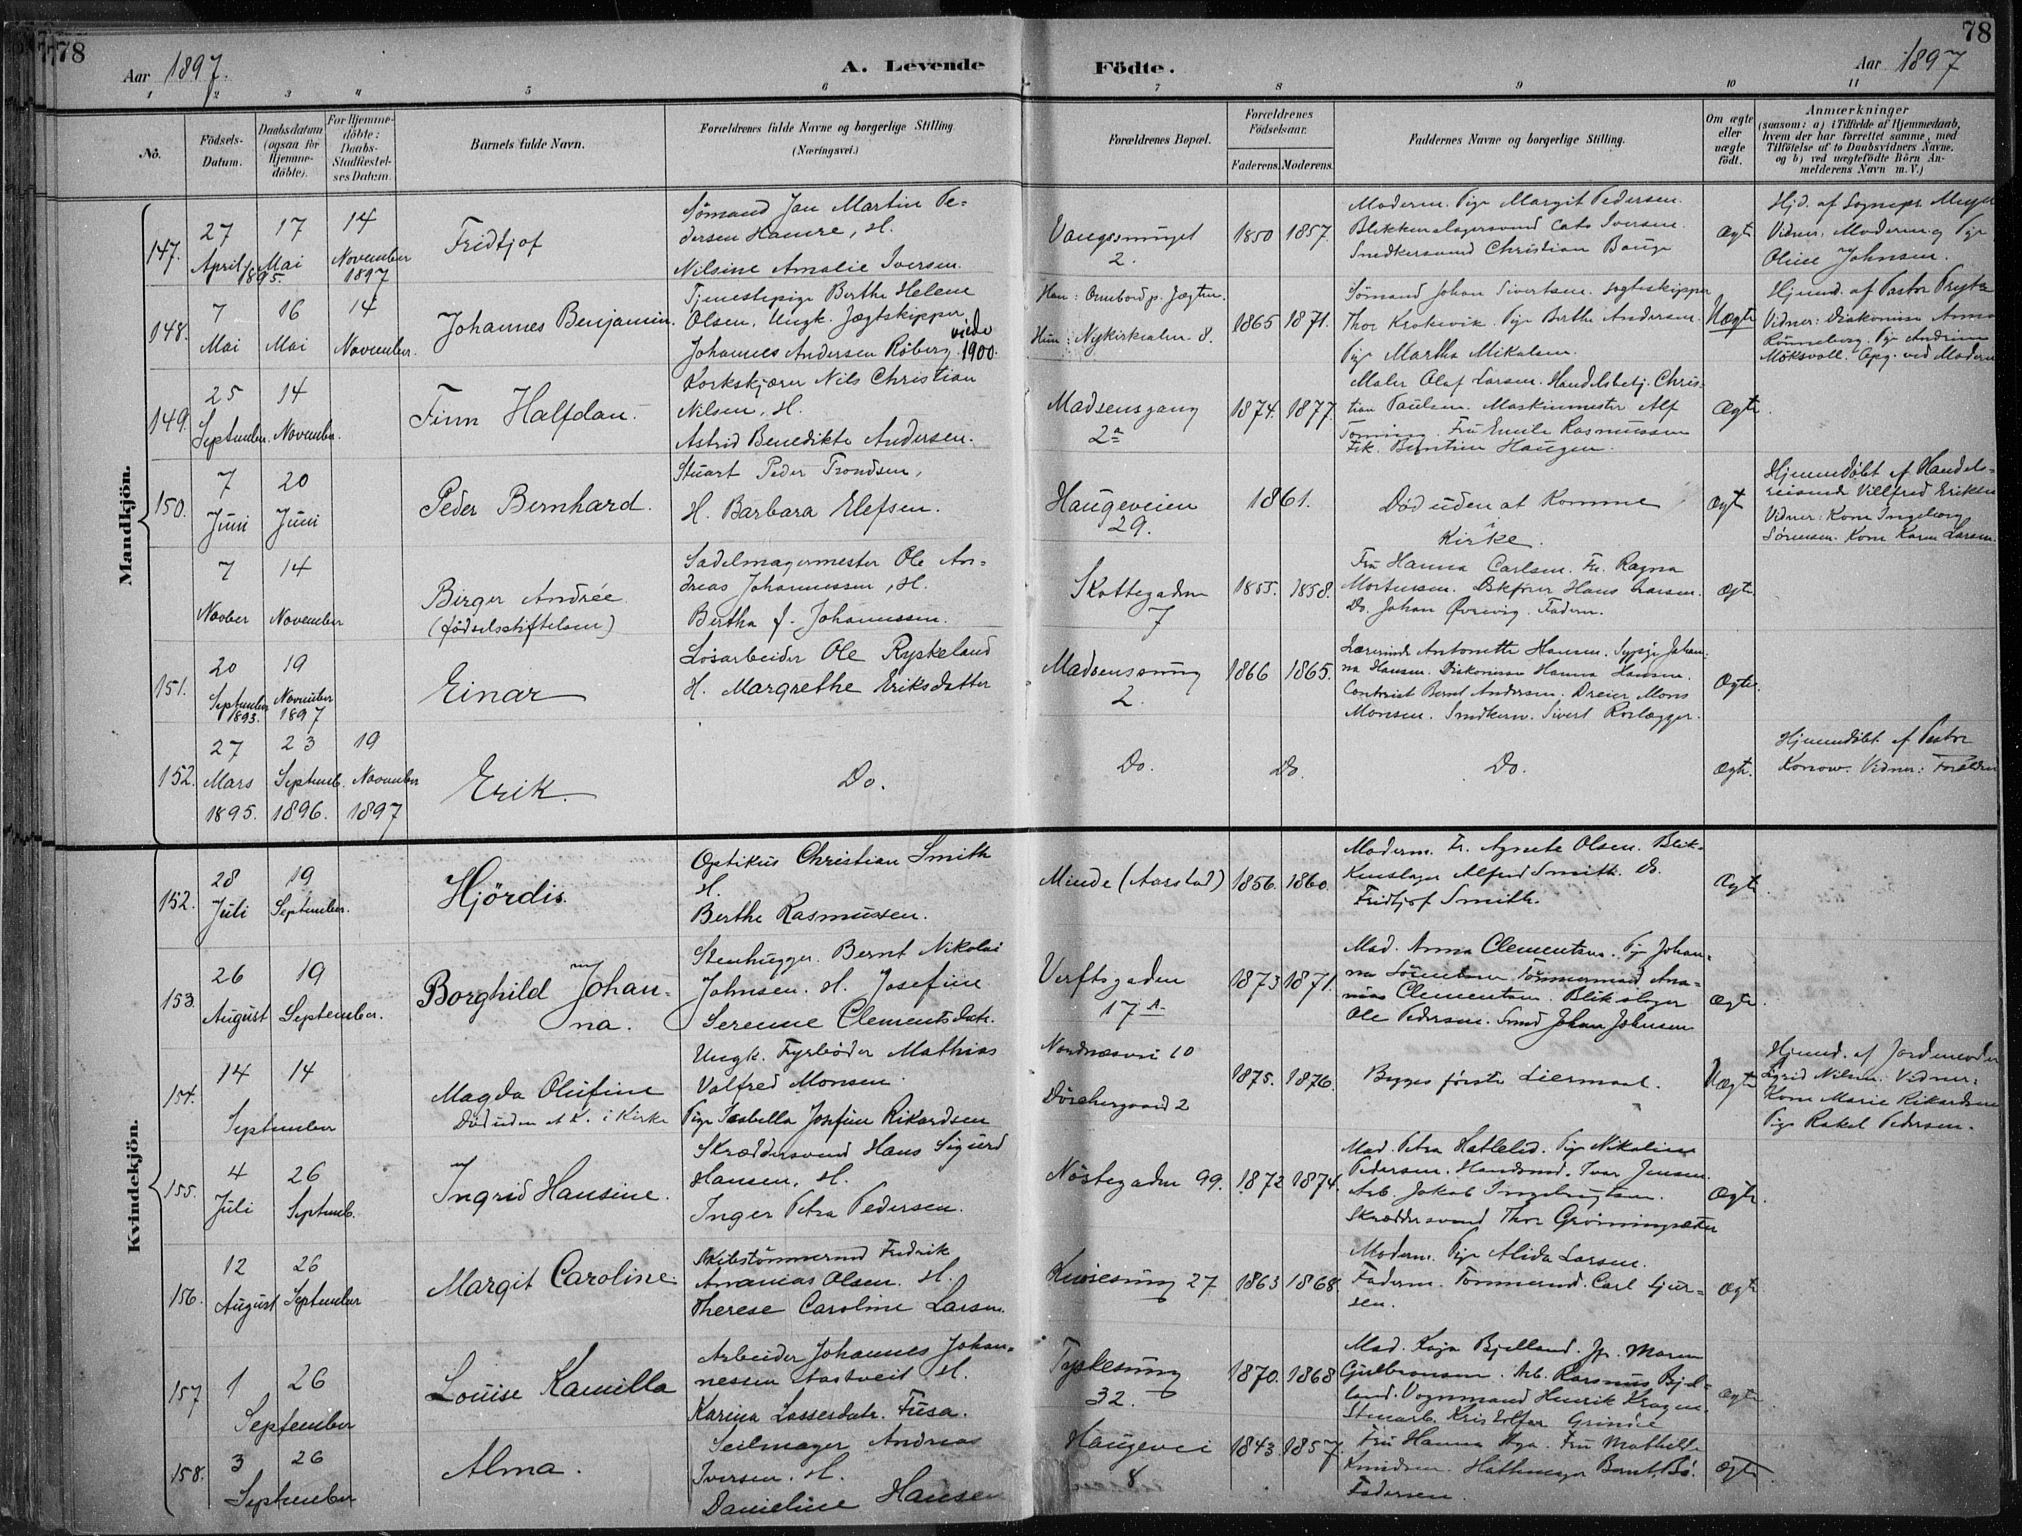 78
Aar 1897.
A. Levende Födte.
Aar 1897
78
1 2 3 4 5 6 7 8 9 10 11
No.
Födsels-Datum.
Daabsdatum (ogsaa for Hjemme-döbte).
For Hjemme-döbte: Daabs-Stadfæstel-ses Datum.
Barnets fulde Navn.
Forældrenes fulde Navne og borgerlige Stilling
(Næringsvei.)
Forældrenes Bopæl.
Forældrenes Födselsaar.
Faderens. Moderens.
Faddernes Navne og borgerlige Stilling.
Om ægte eller uægte födt.
Anmærkninger
(saasom: a) i Tilfælde af Hjemmedaab, hvem der har forrettet samme, med Tilföielse af to Daabsvidners Navne, og b) ved uægtefödte Börn An-melderens Navn m. V.)
Mandkjön.
147.
27 April 1895.
17 Mai
14 November 1897
Fridtjof
Sömand Jan Martin Pe-
dersen Hamre, H.
Nilsine Amalie Iversen.
2.
1850 1857.
Moderen. Pige Margit Pedersen.
Blikkenslagersvend Iversen.
Snedkersvend Christian
Ægte
Hjd. af Sognepr.
Vidner: Moderen og Pige
Oline Johnsen.
148.
7 Mai
16 Mai
14 November.
Johannes Benjamin.
Tjenestepige Berthe Helene
Olsen, Ungk. Jægtskipper
Johannes Andersen Röberg viede 1900.
Han: Ombord p. Jægten.
Hun: Nykirkealm. 8.
1865 1871.
Sömand Johan Sivertsen. Jægteskipper
Thor Pige Berthe Andersen.
Pige Martha Mikalsen.
Uægte
Hjemd. af Pastor
Vidner: Diakonisse Anna
Pige
Opg. ved Moderen
149.
25 September.
14 November.
Finn Halfdan.
Korkskjærer Nils Christian
Nilsen, H.
Astrid Benedikte Andersen.
Madsensgang
2a
1874. 1877.
Maler Olaf Larsen. Handelsbetj. Chris-
tian Paulsen. Maskinmester Alf
Fru Emile Rasmussen
Frk. Haugen.
Ægte.
150.
7 Juni
20 Juni
Peder Bernhard.
Stuart Peder Trondsen,
H. Barbara Elefsen.
Haugeveien
29.
1861.
Död uden at komme
i Kirke.
Ægte
Hjemmedöbt af Handels-
reisende Villfred Eriksen
Vidner: Kone Ingeborg
Sörensen. Kone Karen Larsen.
7 Novber
14 November
Birger Andrée.
(födselsstiftelsen)
Sadelmagermester Ole An-
dreas Johannessen, H.
Bertha f. Johannessen.
Skottegaden
7
1855. 1858.
Fru Hanna Carlsen. Fr. Ragna
Mortensen. Hans Larsen.
Do. Johan Faderen.
Ægte.
151.
20 September 1893.
19 November 1897
Einar
Lösarbeider Ole Ryskeland
H. Margrethe Eriksdatter
2.
1866 1865.
Lærerinde Antonette Hansen. Sypige Johan-
na Hansen. Diakonisse Hanna Hansen.
Contorist Bernt Andersen. Dreier Mons
Monsen. Snedkersv. Sivert
Ægte.
152.
27 Mars 1895.
23 Septemb. 1896.
19 November 1897
Erik.
Do.
Do.
Do
Do.
Ægte.
Hjemmedöbt af Pastor
Konow. Vidner: Forældrene
Kvindekjön.
152.
28 Juli
19 September.
Hjördis.
Optikus Christian Smith
H.
Berthe Rasmussen.
Minde (Aarstad)
1856. 1860.
Moderen. Fr. Agnete Olsen. Blik-
kenslager Alfred Smith. Do.
Fridtjof Smith.
Ægte.
153.
26 August
19 September.
Borghild Johan-
na.
Stenhugger. Bernt Nikolai
Johnsen. H. Josefine
Serenne Clementsdatr.
Verftsgaden
17 A.
1873 1871.
Mad. Anna Clementsen. Pige Johan-
na Tömmermand Ana-
nias Clementsen. Blikslager
Ole Pedersen. Smed Johan Johnsen
Ægte.
154.
14 14
September
Magda Olufine
Död uden at k. i Kirke
Ungk. Fyrböder Mathias
Valfred Monsen.
Pige Isabella Josefine Rikardsen
Nordnæsvei 10
2
1875. 1876.
Bygges förste Liermaal.
Uægte
Hjemd. af Jordemoder
Vidner:
Kone Marie Rikardsen
Pige Rakel Pedersen.
155.
4 Juli
26 Septemb.
Ingrid Hansine.
Skræddersvend Hans Sigurd
Hansen, H.
Inger Petra Pedersen.
Nöstegaden 99.
1872 1874.
Mad. Petra Hatleli. Pige Nikoline
Pedersen. Ivar Jensen.
Arb. Jakob Ingebrigtsen.
Skræddersvend Thor Grönningsæter
Ægte.
156.
12 August
26 September
Margit Caroline
Skibstömmermd Fredrik
Ananias Olsen. H.
Therese Caroline Larsen.
27
1863 1868.
Moderen. Pige Alida Larsen.
Faderen. Tömmermd. Carl
sen.
Ægte.
157
1 26
September
Louise Kamilla
Arbeider Johannes Johan-
nessen Aastveit H.
Karina Lassesdatr. Fusa.
32.
1870. 1868
Mad. Kaja Bjelland. Maren
Gulbransen. Arb. Rasmus Bjel-
land. Vognmand Henrik
Ægte
158.
3 26
September
Alma.
Seilmager Andreas
Iversen. H.
Danieline Hansen
Haugevei
8
1843. 1857.
Fru Hanna Fru Mathilde
Knudsen. Hattemager
Ægte